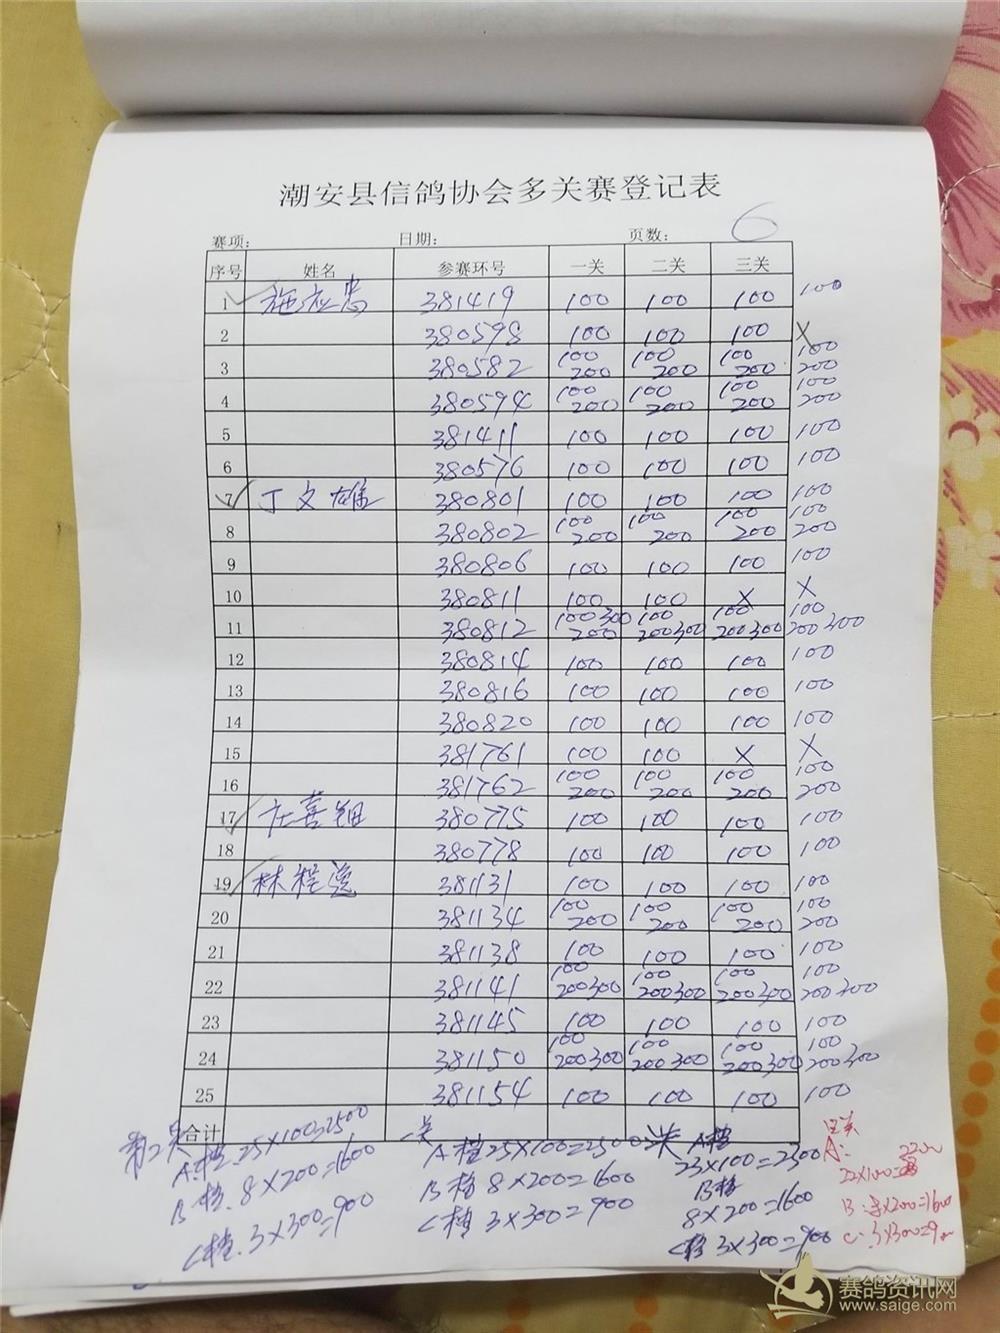 潮安县信鸽协会多关赛登记表
6
赛项: 日期: 页数:
序号 姓名 参赛环号 一关 二关 三关
1 施应忠 381419 100 100 100 100
2 380598 100 100 100 X
3 380582 100 200 100 200 100 200 100 200
4 380594 100 200 100 200 100 200 100 200
5 381411 100 100 100 100
6 380576 100 100 100 100
7 丁文雄 380801 100 100 100 100
8 380802 100 200 100 200 100 200 100 200
9 380806 100 100 100 100
10 380811 100 100 X X
11 380812 100 300 200 100 200 300 100 200 300 100 200 300
12 380814 100 100 100 100
13 380816 100 100 100 100
14 380820 100 100 100 100
15 381761 100 100 X X
16 381762 100 200 100 200 100 200 100 200
17 喜 380775 100 100 100 100
18 380778 100 100 100 100
19 林程逸 381131 100 100 100 100
20 381134 100 200 100 200 100 200 100 200
21 381138 100 100 100 100
22 381141 100 200 300 100 200 300 100 200 300 100 200 300
23 381145 100 100 100 100
24 381150 100 200 300 100 200 300 100 200 300 100 200 300
25 381154 100 100 100 100
合计
第二关
A档.25X100=2500
B档.8X200=1600
C档.3X300=900
一关
A档25X100=2500
B档8X200=1600
C档3X300=900
三关
A档
23X100=2300
B档
8X200=1600
C档3X300=900
四关
A:
22X100=2200
B:8X200=1600
C:3X300=900
赛鸽资讯网
www.saige.com